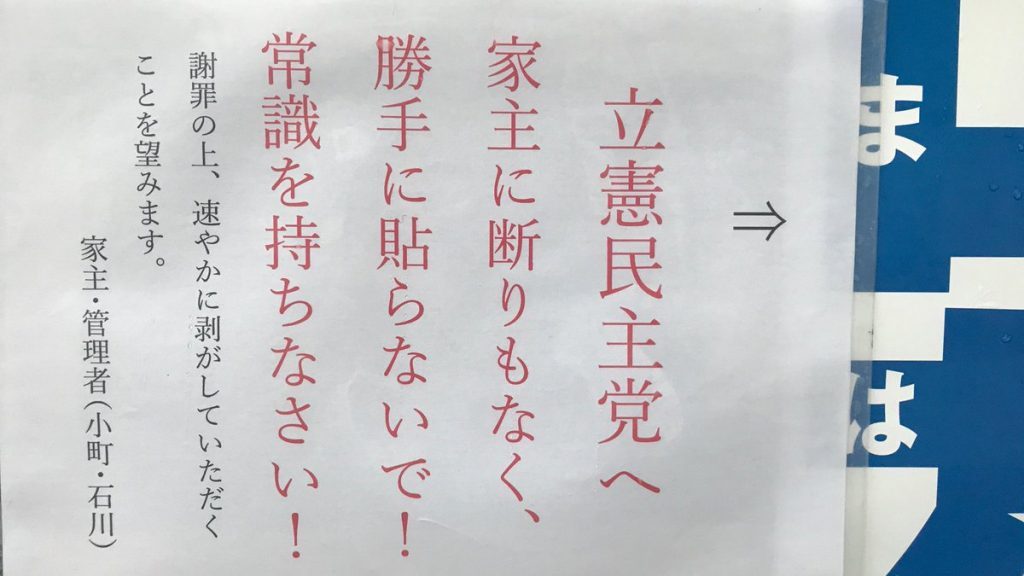 ⇒
立憲民主党へ
家主に断りもなく、
勝手に貼らないで!
常識を持ちなさい!
謝罪の上、速やかに剥がしていただく
ことを望みます。
家主・管理者(小町・石川)
ま
は